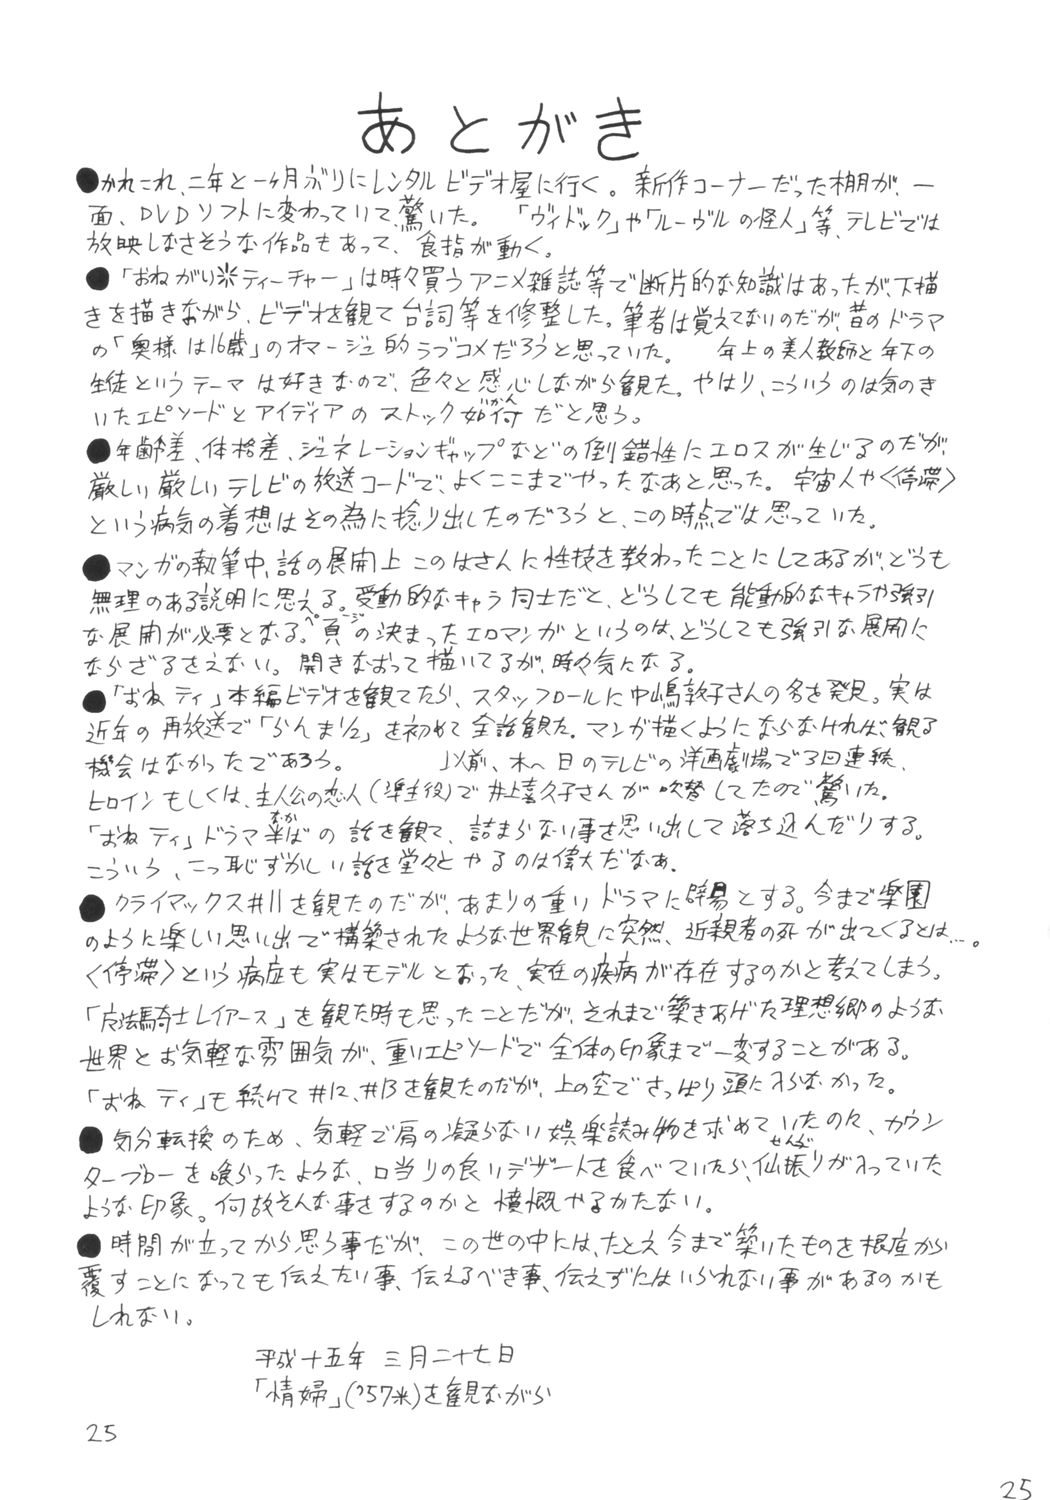 あとがき
●かれこれ、二年と一ヶ月ぶりにレンタルビデオ屋に行く。新作コーナーだった棚が、一
面、DVDソフトに変わっていて、驚いた。「ヴィドック」や「ルーヴルの怪人」等、テレビでは
放映しなさそうな作品もあって、食指が動く。
●「おねがい＊ティーチャー」は時々買うアニメ雑誌等で断片的な知識はあったが、下描
きを描きながら、ビデオを観て台詞等を修整した。筆者は覚えてないのだが、昔のドラマ
の「奥様は16歳」のオマージュ的ラブコメだろうと思っていた。 年上の美人教師と年下の
生徒というテーマは好きなので、色々と感心しながら観た。やはり、こういうのは気のき
いたエピソードとアイディアのストック如何だと思う。
●年齢差、体格差、ジェネレーションギャップなどの倒錯性にエロスが生じるのだが、
厳しい厳しいテレビの放送コードで、よくここまでやったなあと思った。宇宙人や〈停滞〉
という病気の着想はその為に捻り出したのだろうと、この時点では思っていた。
●マンガの執筆中、話の展開上このはさんに性技を教わったことにしてあるが、どうも
無理のある説明に思える。受動的なキャラ同士だと、どうしても能動的なキャラや強引
な展開が必要となる。頁の決まったエロマンガというのは、どうしても強引な展開に
ならざるをえない。開きなおって描いてるが、時々気になる。
●「おねティ」本編ビデオを観てたら、スタッフロールに中嶋敦子さんの名を発見。実は
近年の再放送で「らんま1/2」を初めて全話観た。マンガ描くようにならなければ、観る
機会はなかったであろう。 以前、木〜日のテレビの洋画劇場で3回連続、
ヒロインもしくは、主人公の恋人(準主役)で井上喜久子さんが吹替してたので驚いた。
「おねティ」ドラマ半ばの話を観て、詰まらない事を思い出して落ち込んだりする。
こういう、こっ恥ずかしい話を堂々とやるのは偉大だなぁ。
●クライマックス#11を観たのだが、あまりの重いドラマに辟易とする。今まで楽園
のように楽しい思い出で構築されたような世界観に突然、近親者の死が出てくるとは…。
〈停滞〉という病症も実はモデルとなった、実在の疾病が存在するのかと考えてしまう。
「魔法騎士レイアース」を観た時も思ったことだが、それまで築きあげた理想郷のような
世界とお気軽な雰囲気が、重いエピソードで全体の印象まで一変することがある。
「おねティ」も続けて#12、#13を観たのだが、上の空でさっぱり頭に入らなかった。
●気分転換のため、気軽で肩の凝らない娯楽読み物を求めていたのに、カウン
ターブローを喰らったような、口当りの良いデザートを食べていたら、仙振りが入っていた
ような印象。何故そんな事をするのかと憤慨やるかたない。
●時間が立ってから思う事だが、この世の中には、たとえ今まで築いたものを根底から
覆すことになっても伝えたい事、伝えるべき事、伝えずにはいられない事があるのかも
しれない。
平成十五年 三月二十七日
「情婦」('57米)を観ながら
25
25